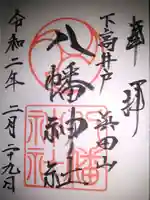 奉拝
下高井戸
浜田山
八幡神社
令和二年
二月二十九日